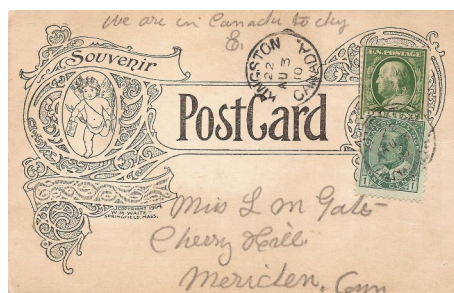 We are in Canada to day
E.
Souvenir
KINGSTON
CANADA
22
AU 3
10
U.S. POSTAGE
PostCard
COPYRIGHT 1904
W.M. WAITE
SPRINGFIELD, MASS.
1
1
Miss L M Gates
Cherry Hill
Meriden, Conn